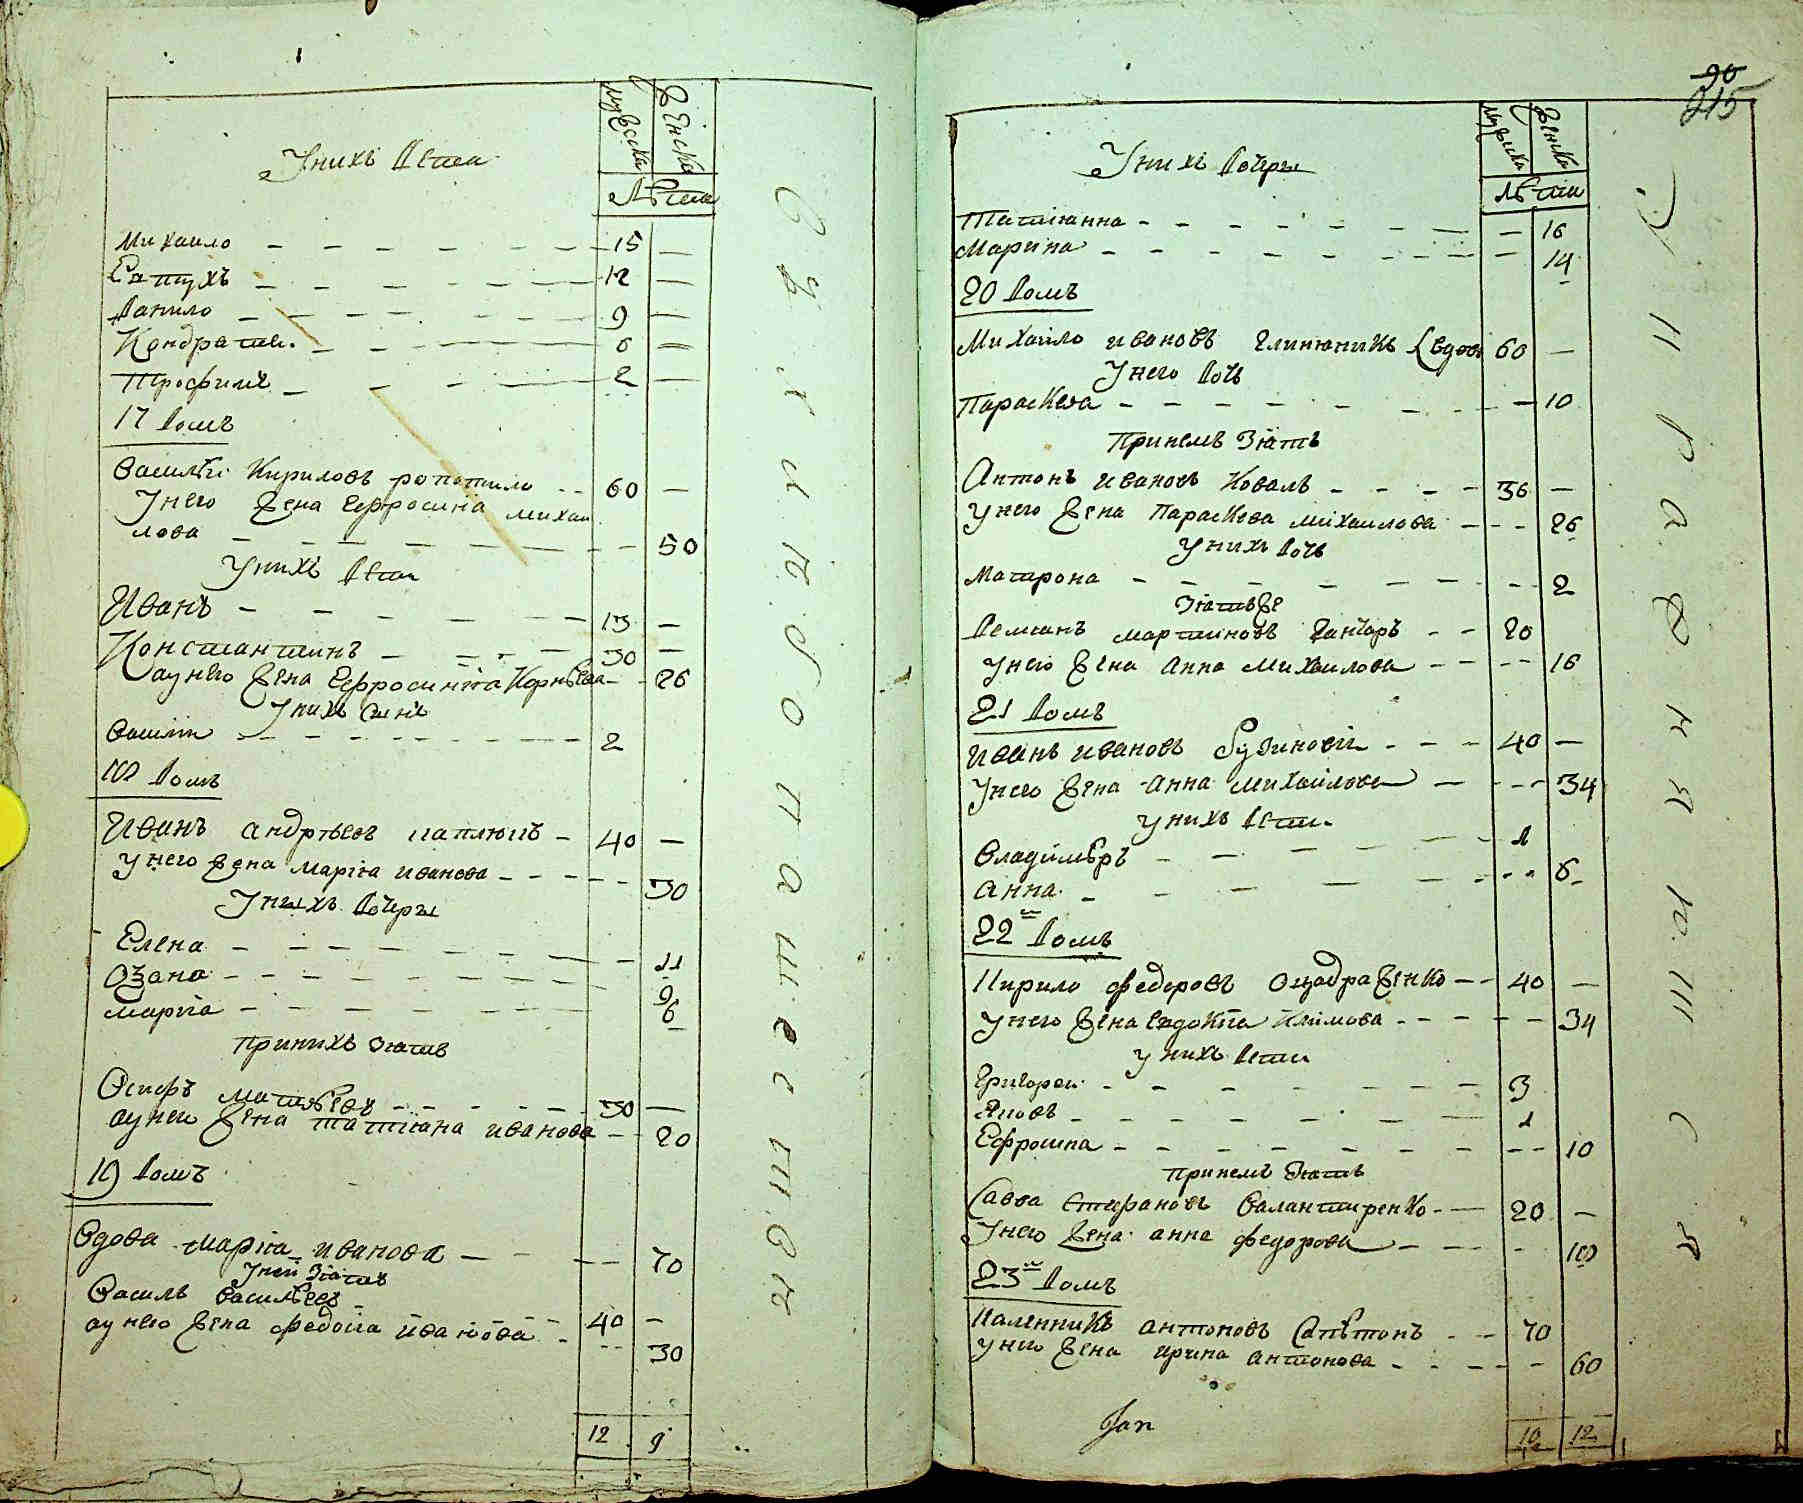 мужеска
женска
У нихъ дети
Лѣта
Михаило 15
Евтухъ 12
Данило 9
Кондрати 6
Трофимъ 2
17 домъ
Василѣи Кириловъ 60
У него жена Ефросиніа Михаи
лова 50
У нихъ дети
Иванъ 15
Константинъ 30
а у него жена Ефросиніа Корнѣева 26
У нихъ синъ
Васили 2
18 домъ
Иванъ Андрѣевъ 40
у него жена Маріа Иванова 30
У нихъ дочеры
Елена 11
Озана 9
Маріа 6
При нихъ зіать
Осипъ Матвѣевъ 30
а у него жена Татіана Иванова 20
19 домъ
Вдова Маріа Иванова 70
У ней зіать
Василь Василѣевъ 40
а у него жена Федосіа Иванова 30
12 9
90
215
мужеска
женска
У нихъ дочеры
Лѣта
Татіанна 16
Марина 14
20 домъ
Михаило Ивановъ вдовъ 60
У него дочь
Параскева 10
При немъ зіать
Антонъ Ивановъ Коваль 36
У него жена Параскева Михаилова 26
У нихъ дочь
Матрона 2
Зіать же
Демианъ Мартиновъ Ганчаръ 20
у него жена Анна Михаилова 16
21 домъ
Иванъ Ивановъ 40
У него жена Анна Михаилова 34
У нихъ дети
Владимѣръ 1
Анна 6
22 домъ
Кирило Федоровъ 40
У него жена Евдокіа Климова 34
У нихъ дети
Григореи 3
Яковъ 1
Ефросина 10
При немъ зіать
Савва Стефановъ 20
У него жена Анна Федорова 18
23 домъ
Каленникъ Антоновъ 70
У него жена Ирина Антонова 60
10 12